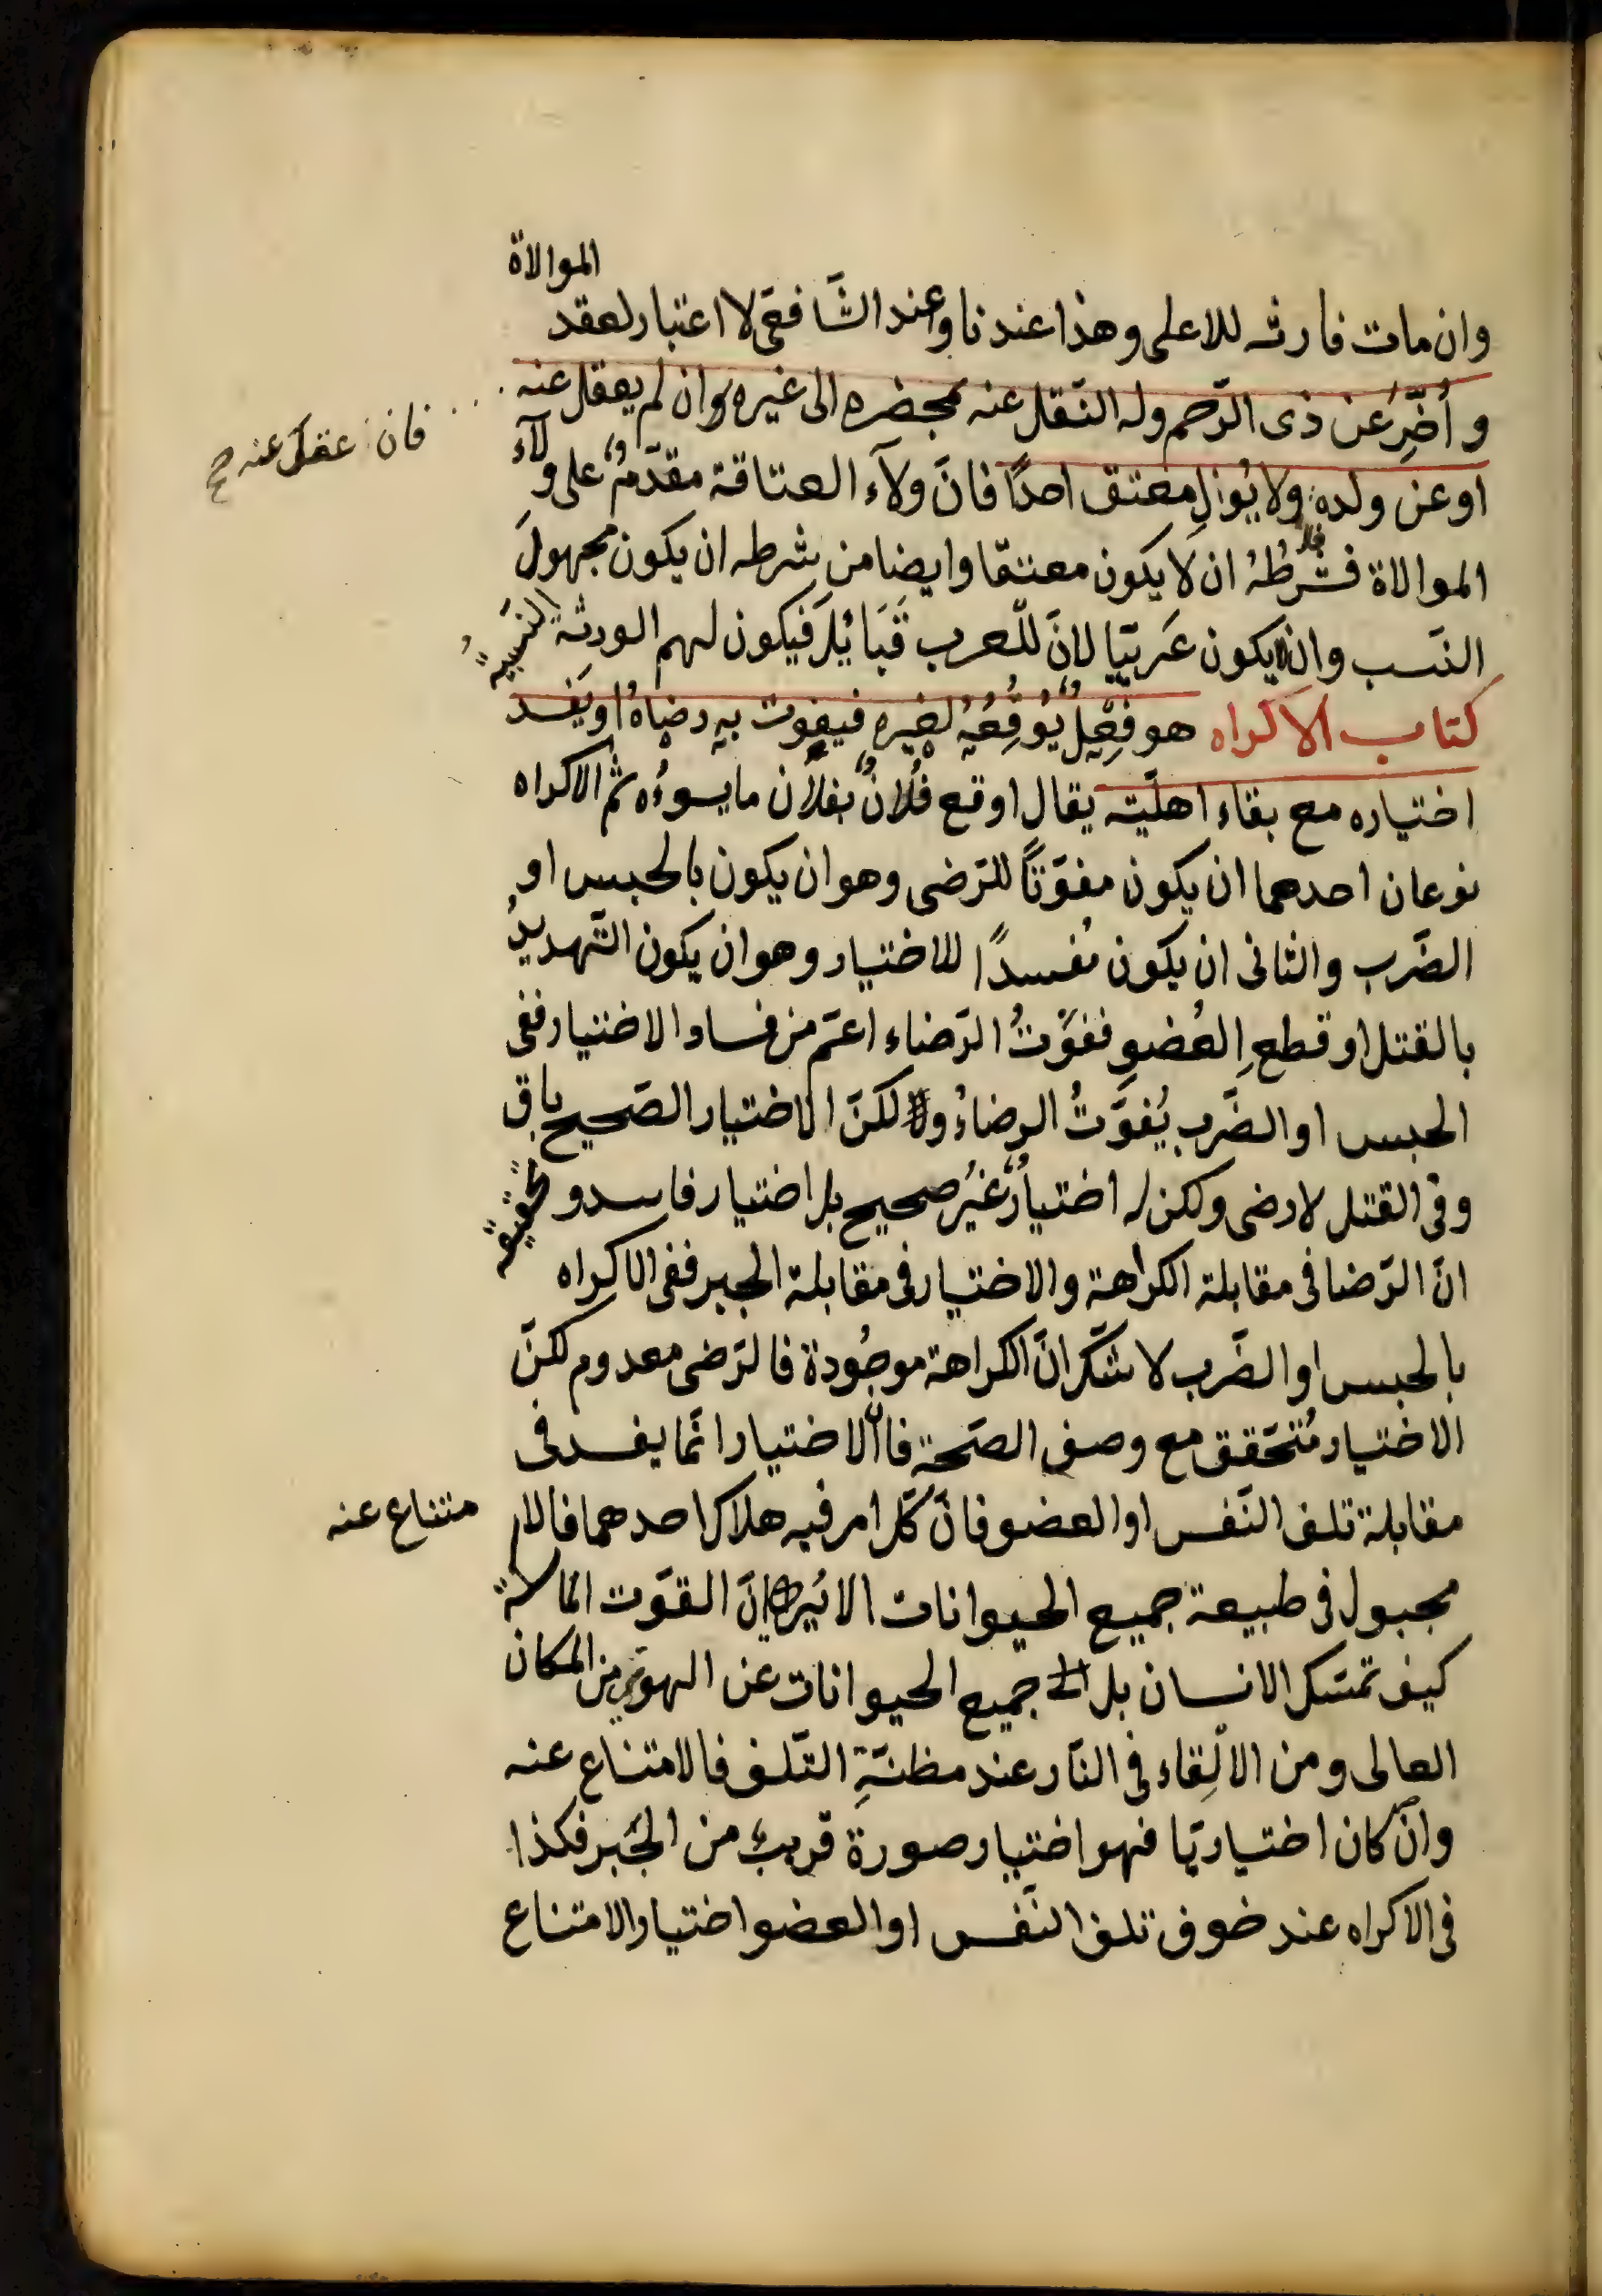 الموالاة
وان مات فارثه للاعلى وهذا عندنا وعند الشّافعى لا اعتبار لعقد
و أُخِّرَ عن ذى الرّحم وله النّقل عنه بمحضره الى غيره ان لم يعقل عنه
فان عقل عنه صح
او عن ولده ولا يُوالِ معتق احدًا فانّ ولآء العتاقة مقدّمٌ على ولآء
الموالاة فشرطُهُ ان لا يكون معتقا وايضا من شرطه ان يكون مجهولَ
النّسب وان لا يكون عَربيّا لانّ للعرب قَبَائِلَ فيكون لهم الورثة النَسبيةُ
كتاب الاكراه هو فِعْلٌ يُوْقِعُهُ لغيرِهِ فيفوت بِهِ رضاهُ او يَفسد
اختياره مع بقاء اهليّته يقال اوقع فُلانٌ بفلان ما يسوءُه ثم الاكراه
نوعان احدهما ان يكون مفوّتاً للرّضى وهو ان يكون بالحبس او
الضّرب والثانى ان يكون مُفسدًا للاختيار وهو ان يكون التّهديدُ
بالقتل او قطعِ العُضوِ ففَوْتُ الرّضاء اعمّ من فساد الاختيار ففى
الحبس او الضّرب يُفَوَّتُ الرضاءُ ولكنّ الاختيار الصّحيح باق
وفى القتل لا رضى ولكن له اختيارٌ غيرُ صحيح بل اختيار فاسد وتحقيقه
انّ الرّضا فى مقابلة الكراهة والاختيار فى مقابلة الجبر ففى الاكراه
بالحبس او الضّرب لا شكّ انّ الكراهة موجُودة فالرّضى معدوم لكنّ
الاختيار مُتحَقق مع وصف الصّحة فان الاختيار انّما يفسد فى
مقابلة تلف النّفس او العضو فانّ كلّ امر فيه هلاك احدهما فالامتناع عنه
مجبول فى طبيعة جميع الحيوانات الا يُرى انّ القوّت الماسكة
كيف تمسّك الانسان بل جميع الحيوانات عن الهوى من المكان
العالى ومن الالْقِاء فى النّار عند مظنّةِ التّلف فالامتناع عنه
وان كان اختياريّا فهو اختيار صورة قريبٌ من الجَبر فكذا
فى الاكراه عند خوف تلف النّفس او العضو اختيار الامتناع